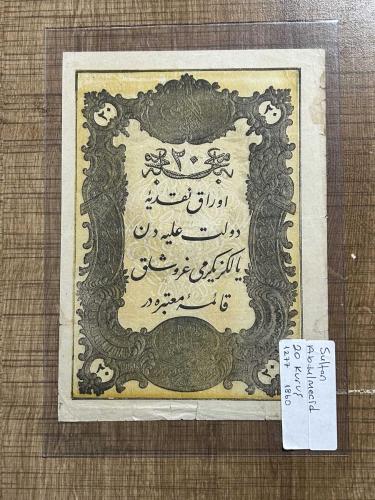 ٢٠
٢٠
٢٠
اوراق نقدیهٔ
دولت علیه دن
یالکز یگرمی غروشلق
قائمهٔ معتبره در
٢٠
٢٠
Sultan
Abdulmecid
20 Kuruş
1277 1860